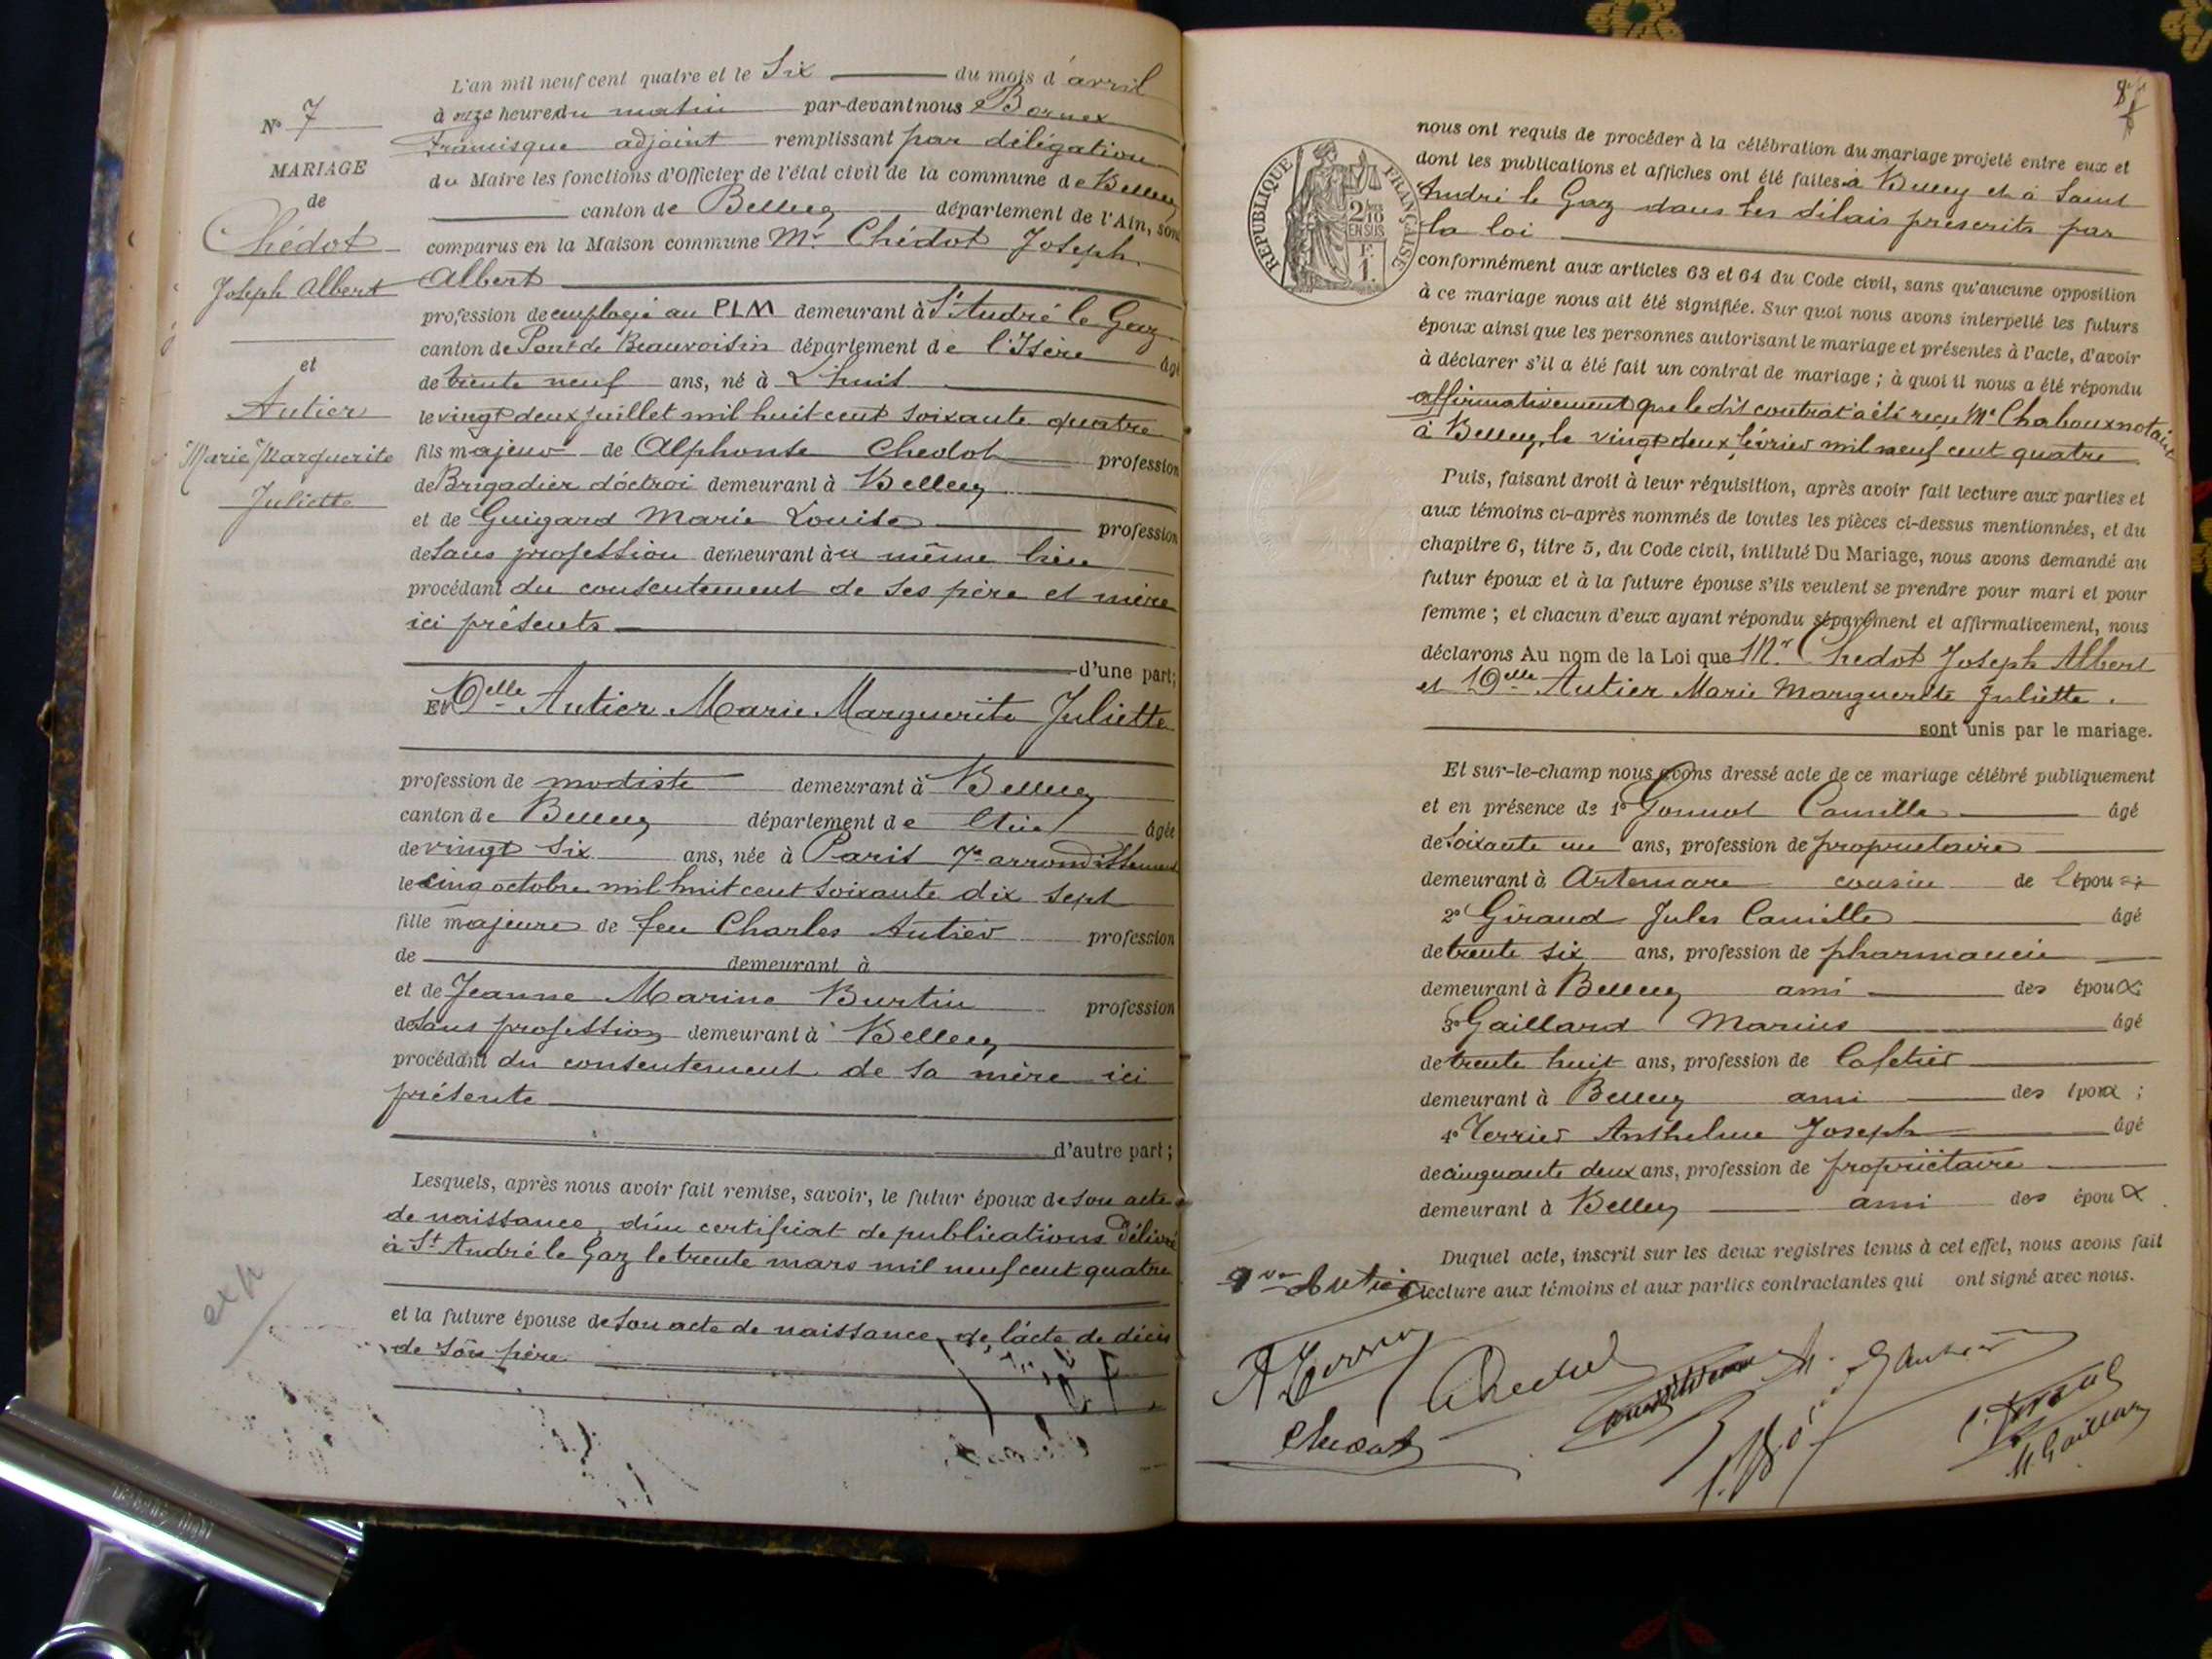 L'an mil neuf cent quatre et le Six du mois d'avril
à onze heure du matin par-devant nous Bornex
Francisque adjoint remplissant par délégation
du Maire les fonctions d'Officier de l'état civil de la commune de Belley
canton de Belley département de l'Ain, sont
comparus en la Maison commune Mr Chédot Joseph
Albert
profession de employé au PLM demeurant à St André le Gaz
canton de Pont de Beauvoisin département de l'Isère âgé
de trente neuf ans, né à Lhuis
le vingt deux juillet mil huit cent soixante quatre
fils majeur de Alphonse Chedot profession
de Brigadier d'octroi demeurant à Belley
et de Guigard Marie Louise profession
de sans profession demeurant au même lieu
procédant du consentement de ses père et mère
ici présents
d'une part;
Et Delle Autier Marie Marguerite Juliette
profession de modiste demeurant à Belley
canton de Belley département de l'Ain âgée
de vingt six ans, née à Paris 7e arrondissement
le cinq octobre mil huit cent soixante dix sept
fille majeure de feu Charles Autier profession
de demeurant à
et de Jeanne Marine Burtin profession
de sans profession demeurant à Belley
procédant du consentement de sa mère ici
présente
d'autre part;
Lesquels, après nous avoir fait remise, savoir, le futur époux de son acte
de naissance, d'un certificat de publications délivré
à St André le Gaz le trente mars mil neuf cent quatre
et la future épouse de son acte de naissance, de l'acte de décès
de son père
No 7
MARIAGE
de
Chédot
Joseph Albert
et
Autier
Marie Marguerite
Juliette
exp
RÉPUBLIQUE FRANÇAISE
2/10
EN SUS
F.
1.
nous ont requis de procéder à la célébration du mariage projeté entre eux et
dont les publications et affiches ont été faites à Belley et à Saint
André le Gaz dans les délais prescrits par
la loi
conformément aux articles 63 et 64 du Code civil, sans qu'aucune opposition
à ce mariage nous ait été signifiée. Sur quoi nous avons interpellé les futurs
époux ainsi que les personnes autorisant le mariage et présentes à l'acte, d'avoir
à déclarer s'il a été fait un contrat de mariage; à quoi il nous a été répondu
affirmativement que le dit contrat a été reçu Me Chaboux notaire
à Belley, le vingt deux février mil neuf cent quatre
Puis, faisant droit à leur réquisition, après avoir fait lecture aux parties et
aux témoins ci-après nommés de toutes les pièces ci-dessus mentionnées, et du
chapitre 6, titre 5, du Code civil, intitulé Du Mariage, nous avons demandé au
futur époux et à la future épouse s'ils veulent se prendre pour mari et pour
femme; et chacun d'eux ayant répondu séparément et affirmativement, nous
déclarons Au nom de la Loi que Mr Chedot Joseph Albert
et Delle Autier Marie Marguerite Juliette.
sont unis par le mariage.
Et sur-le-champ nous avons dressé acte de ce mariage célébré publiquement
et en présence de 1o Gonnot Camille âgé
de soixante un ans, profession de propriétaire
demeurant à Artemare cousin de l'épou
2o Giraud Jules Camille âgé
de trente six ans, profession de pharmacien
demeurant à Belley ami des époux
3o Gaillard Marius âgé
de trente huit ans, profession de Cafetier
demeurant à Belley ami des époux;
4o Verrier Anthelme Joseph âgé
de cinquante deux ans, profession de propriétaire
demeurant à Belley ami des époux
Duquel acte, inscrit sur les deux registres tenus à cet effet, nous avons fait
lecture aux témoins et aux parties contractantes qui ont signé avec nous.
Vve Autier
Chedot
Chedot
M. Gaillard